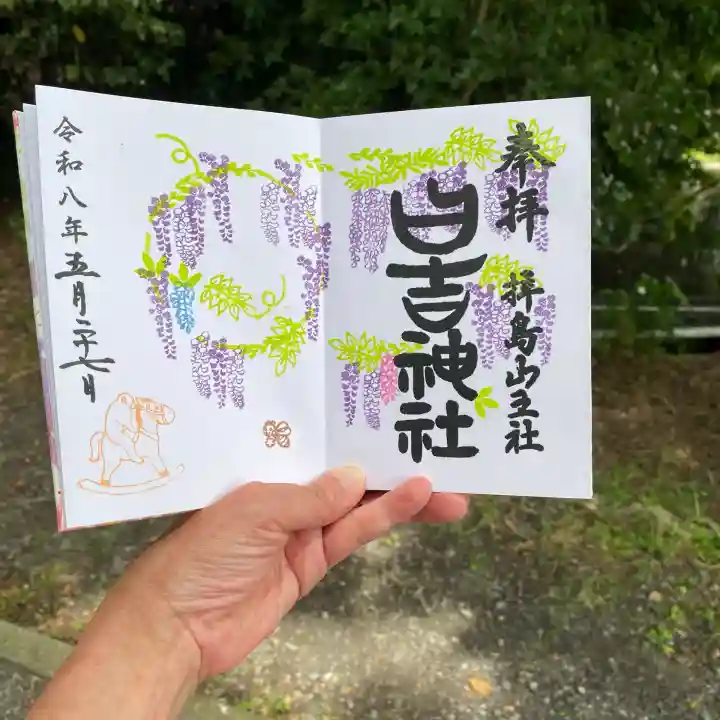 奉拝
拝島山王社
日吉神社
令和八年五月二十七日